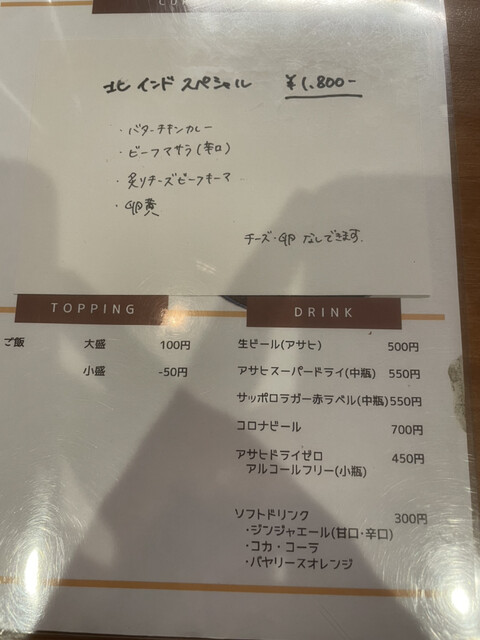 北インドスペシャル ¥1,800-
・バターチキンカレー
・ビーフマサラ(辛口)
・炙りチーズビーフキーマ
・卵黄
チーズ・卵 なしできます.
TOPPING
ご飯 大盛 100円
小盛 -50円
DRINK
生ビール(アサヒ) 500円
アサヒスーパードライ(中瓶) 550円
サッポロラガー赤ラベル(中瓶) 550円
コロナビール 700円
アサヒドライゼロ 450円
アルコールフリー(小瓶)
ソフトドリンク 300円
・ジンジャエール(甘口・辛口)
・コカ・コーラ
・バヤリースオレンジ